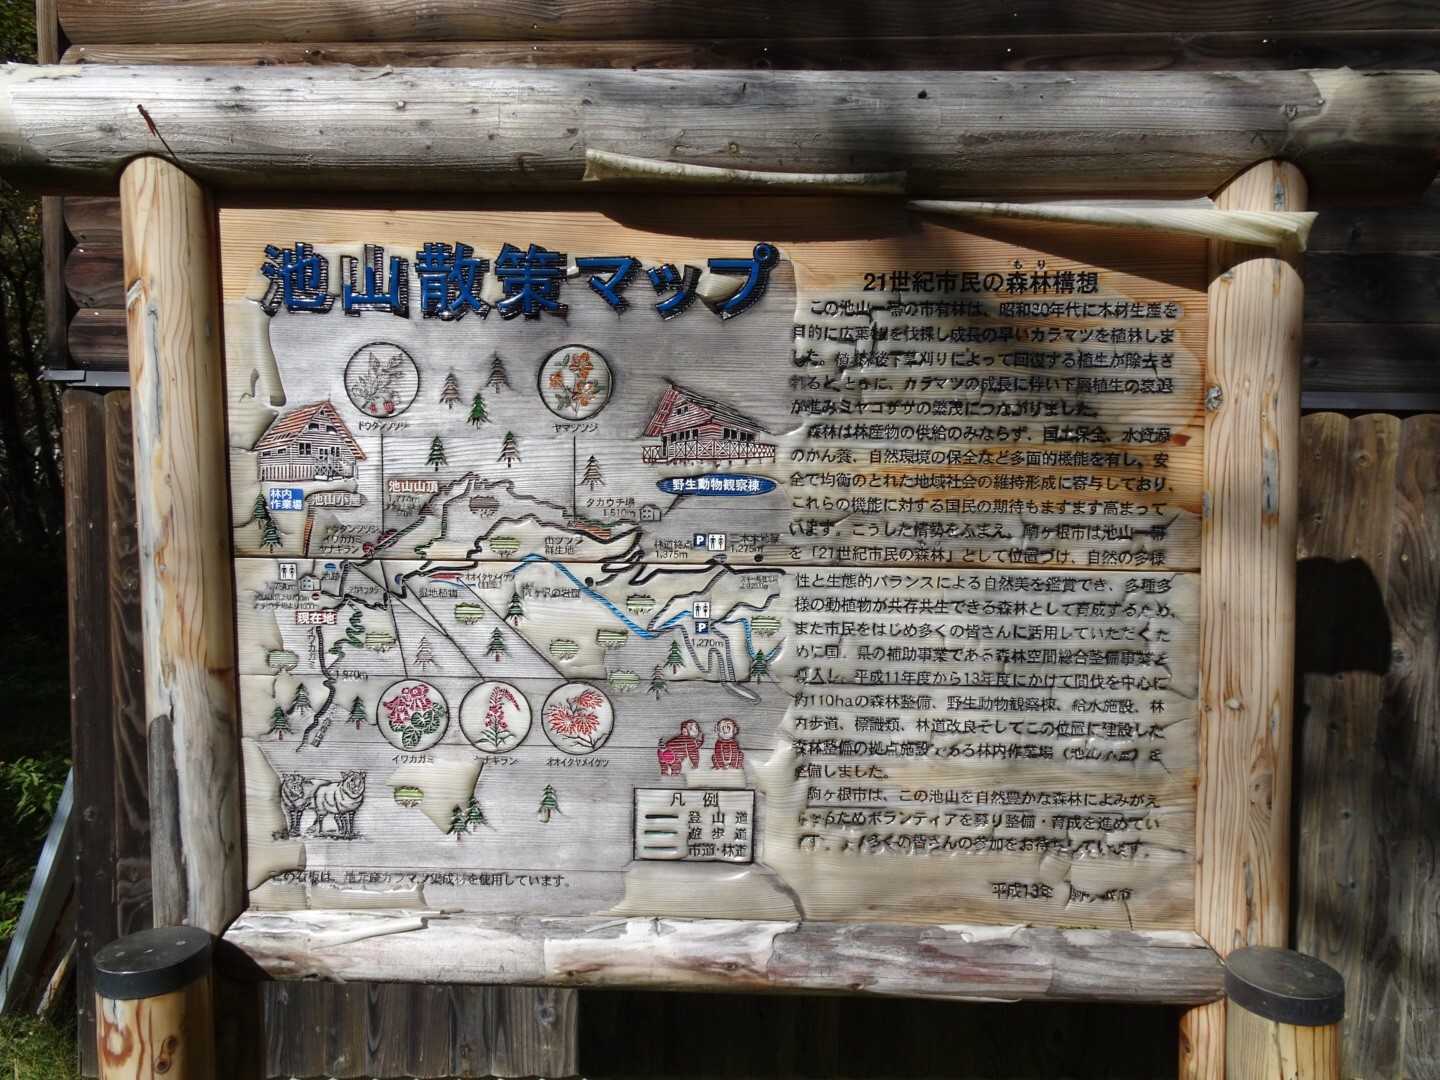 池山散策マップ
ドウダンツツジ
ヤマツツジ
林内
作業場
池山小屋
池山山頂
野生動物観察棟
タカウチ場
1,510m
ドウダンツツジ
イワカガミ
ヤナギラン
群生地
林道終点
1,375m
P
現在地
イワカガミ
P
1,270m
イワカガミ
ヤナギラン
オオイタヤメイゲツ
凡例
登山道
遊歩道
市道・林道
21世紀市民の森林構想
もり
この池山一帯の市有林は、昭和30年代に木材生産を
目的に広葉樹を伐採し成長の早いカラマツを植林しま
した。植栽後下草刈りによって回復する植生が除去さ
れるとともに、カラマツの成長に伴い下層植生の衰退
が進みミヤコザサの繁茂につながりました。
森林は林産物の供給のみならず、国土保全、水資源
のかん養、自然環境の保全など多面的機能を有し、安
全で均衡のとれた地域社会の維持形成に寄与しており、
これらの機能に対する国民の期待もますます高まって
います。こうした情勢をふまえ、駒ヶ根市は池山一帯
を「21世紀市民の森林」として位置づけ、自然の多様
性と生態的バランスによる自然美を鑑賞でき、多種多
様の動植物が共存共生できる森林として育成するため、
また市民をはじめ多くの皆さんに活用していただくた
めに国、県の補助事業である森林空間総合整備事業を
導入し、平成11年度から13年度にかけて間伐を中心に
約110haの森林整備、野生動物観察棟、給水施設、林
内歩道、標識類、林道改良そしてこの位置に建設した
森林整備の拠点施設である林内作業場（池山小屋）を
整備しました。
駒ヶ根市は、この池山を自然豊かな森林によみがえ
らせるためボランティアを募り整備・育成を進めてい
ます。より多くの皆さんの参加をお待ちしています。
平成13年 駒ヶ根市
この看板は、地元産カラマツ集成材を使用しています。